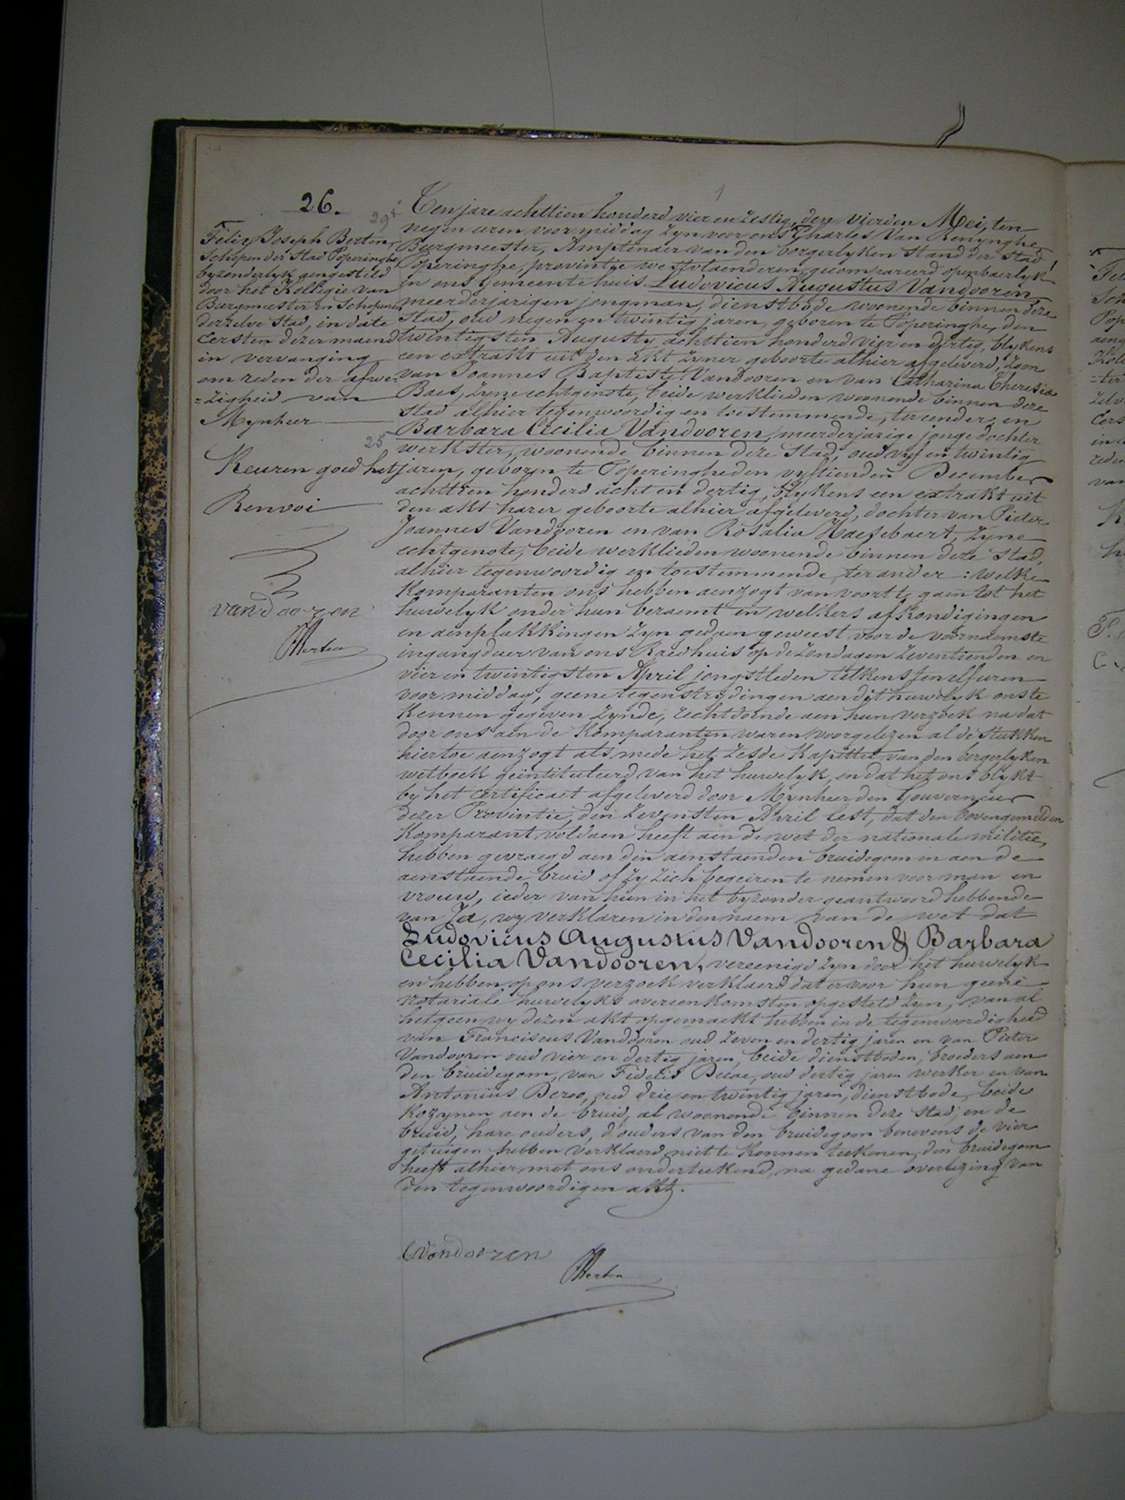 26.
29
Felix Joseph Berten,
Schepen der Stad Poperinghe
byzonderlyk gemagtigd
door het Kollegie van
Burgmeester en Schepenen
derzelve Stad, in date
eersten dezer maend
in vervanging
om reden der afwe-
zigheid van
Mynheer
25
Keuren goed het
Renvoi
vandooren
Berten
Ten jare achttien honderd vier en zestig, den vierden Mei, ten
negen uren voor middag zyn voor ons Charles Van Renynghe,
Burgmeester, Amptenaer van den borgerlyken stand der stad
Poperinghe, provintie westvlaenderen, gecompareerd openbaerlyk
in ons Gemeentehuis Ludovicus Augustus Vandooren,
meerderjarigen jongman, dienstbode woonende binnen deze
stad, oud negen en twintig jaren, geboren te Poperinghe, den
twintigsten Augusty achttien honderd vier en dertig, blykens
een extrakt uit den akt zyner geboorte alhier afgeleverd, zoon
van Joannes Baptiste Vandooren en van Catharina Theresia
Baes, zyne echtgenote, beide werklieden woonende binnen deze
stad alhier tegenwoordig en toestemmende, ter eender en
Barbara Cecilia Vandooren, meerderjarige jonge dochter
werkster, woonende binnen deze stad, oud vyf en twintig
jaren, geboren te Poperinghe den vyftienden December
achttien honderd acht en dertig, blykens een extrakt uit
den akt harer geboorte alhier afgeleverd, dochter van Pieter
Joannes Vandooren en van Rosalia Haezebaert, zyne
echtgenote, beide werklieden woonende binnen deze stad,
alhier tegenwoordig en toestemmende, ter ander: welke
Komparanten ons hebben aenzogt van voort te gaen tot het
huwelyk onder hun beraemt en welkers afkondigingen
en aenplakkingen zyn gedaen geweest voor de voornaemste
ingangdeur van ons Raedhuis op de Zondagen zeventienden en
vier en twintigsten April jongstleden telkens ten elf uren
voor middag, geene tegenstrydingen aen dit huwelyk ons te
kennen gegeven zynde, rechtdoende aen hun verzoek na dat
door ons aen de Komparanten waren voorgelezen al de stukken
hiertoe aenzogt als mede het zesde kapittel van den borgerlyken
wetboek geintituleerd van het huwelyk, en dat het ons blykt
by het certificaet afgeleverd door Mynheer den Gouverneur
dezer Provintie, den zevensten April lest, dat den bovengemelden
Komparant voldaen heeft aen de wet der nationale militie,
hebben gevraegd aen den aenstaenden bruidegom en aen de
aenstaende bruid of zy zich begeiren te nemen voor man en
vrouw, ieder van hun in het byzonder geantwoord hebbende
van Ja, wy verklaren in den naem van de wet dat
Ludovicus Augustus Vandooren & Barbara
Cecilia Vandooren, vereenigd zyn door het huwelyk
en hebben op ons verzoek verklaerd dat er voor hun geene
notariale huwelyks overeenkomsten opgesteld zyn, van al
hetgeen wy dezen akt opgemaekt hebben in de tegenwoordigheid
van Franciscus Vandooren oud zeven en dertig jaren en van Pieter
Vandooren oud vier en dertig jaren, beide dienstboden, broeders aen
den bruidegom, van Fidelis Decae, oud dertig jaren werker en van
Antonius Deroo, oud drie en twintig jaren, dienstbode, beide
Kozynen aen de bruid, al woonende binnen deze stad, en de
bruid, hare ouders, d'ouders van den bruidegom benevens de vier
getuigen hebben verklaerd niet te konnen teekenen, den bruidegom
heeft alhier met ons onderteekend, na gedane overlezing van
den tegenwoordigen akt.
Vandooren
Berten